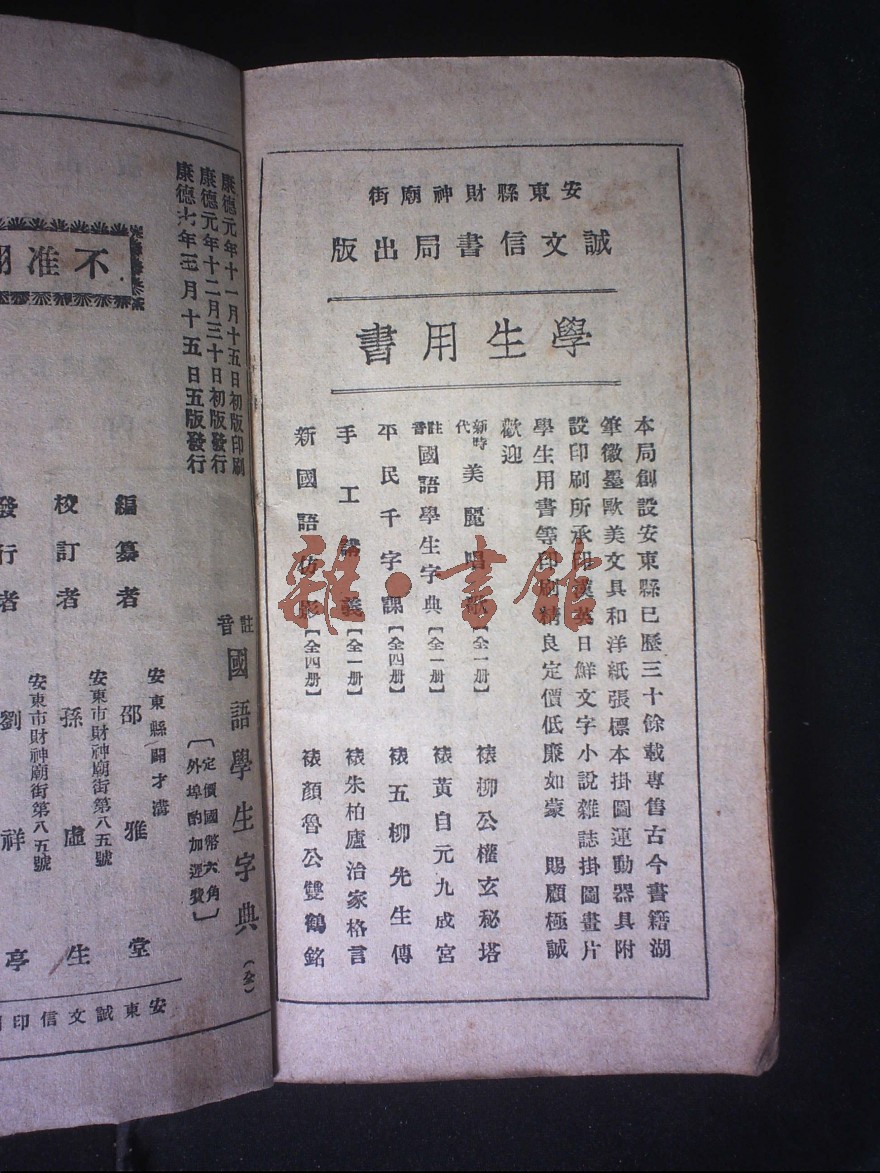 安東縣財神廟街
誠文信書局出版
學生用書
本局創設安東縣已歷三十餘載專售古今書籍湖
筆徽墨歐美文具和洋紙張標本掛圖運動器具附
設印刷所承印漢英日鮮文字小説雜誌掛圖畫片
學生用書等印刷精良定價低廉如蒙 賜顧極誠
歡迎
新時代 美麗唱歌【全一册】 裱柳公權玄秘塔
註音 國語學生字典【全一册】 裱黃自元九成宮
平民千字課【全四册】 裱五柳先生傳
手工講義【全一册】 裱朱柏廬治家格言
新國語仿影【全四册】 裱顏魯公雙鶴銘
註音 國語學生字典(全)
〔定價國幣六角
外埠酌加運費〕
康德元年十一月十五日初版印刷
康德元年十二月三十日初版發行
康德七年三月十五日五版發行
不准
安東縣
編纂者 邵雅堂
安東市財神廟街第八五號
校訂者 孫虛生
安東市財神廟街第八五號
發行者 劉祥亭
安東誠文信印
雜·書館